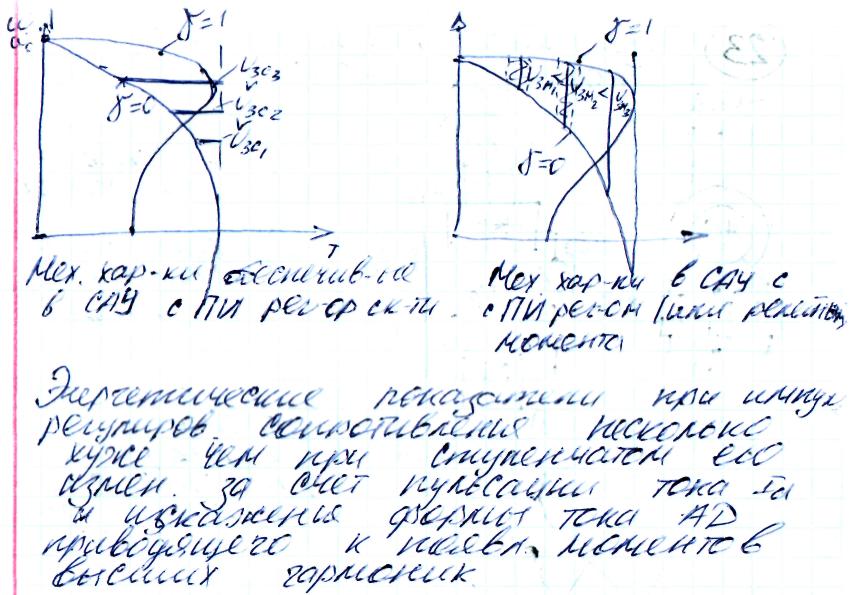 γ=1
γ=1
U3C3
U3M1 < U3M2 < U3M3
γ=0
U3C2
U3C1
γ=0
T
Мех. хар-ки обеспечив-ые
в САУ с ПИ рег-ор ск-ти.
Мех хар-ки в САУ с
с ПИ рег-ом (или релейным
момента
Энергетические показатели при импул
регулиров сопротивления несколько
хуже чем при ступенчатом его
измен. за счет пульсации тока Id
и искажения формы тока АД
приводящего к появл. моментов
высших гармоник.